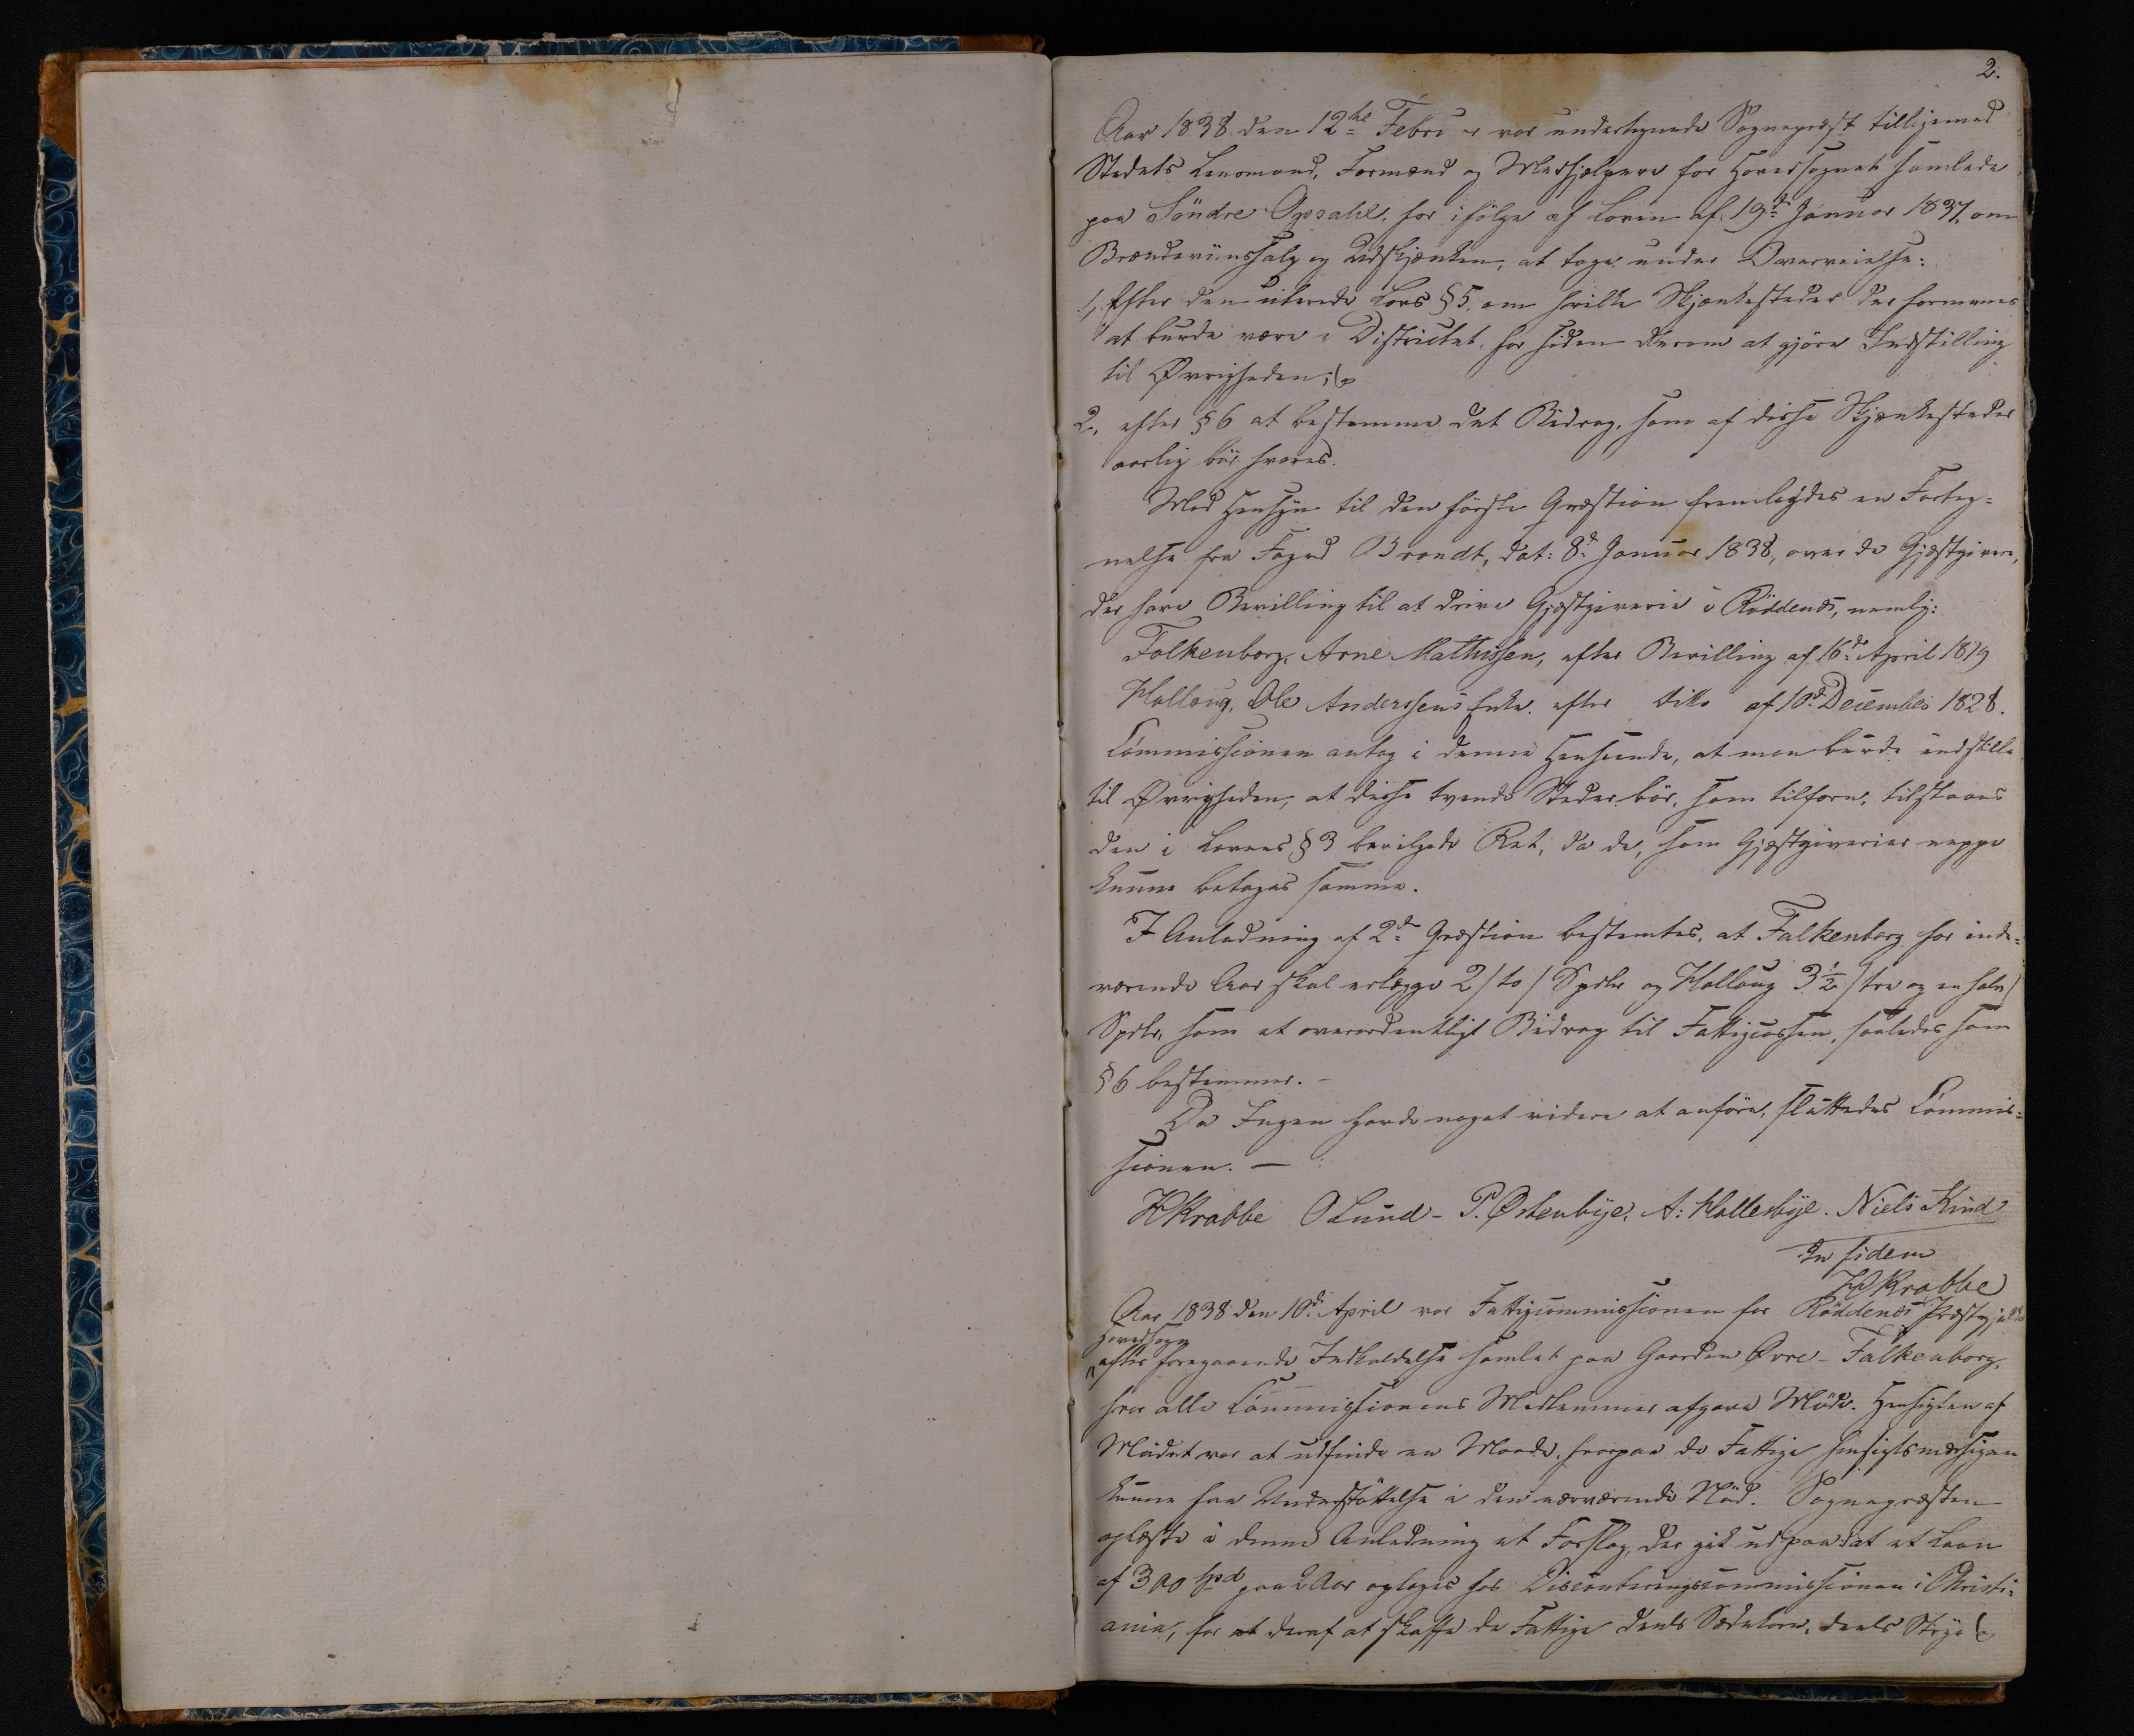 2.
Aar 1838 den 12te Febr: var undertegnede Sognepræst tilligemed
Stedets Lensmand, Formænd og Medhjelpere for Hovedsognet samlede
paa Söndre Opsahl, for ifölge af Loven af 19de Januar 1837, om
Brændeviinssalg og Udskjænken, at tage under Overveielse:
1, Efter den citerede Lovs § 5, om hvilke Skjænkesteder der formenes
at burde være i Districtet, for siden derom at gjöre Indstilling
til Øvrigheden;
2, efter § 6 at bestemme det Bidrag, som af disse Skjænkesteder
aarlig bör svares.
Med Hensyn til den förste Qvæstion fremlagdes en Forteg=
nelse fra Foged Brandt, dat: 8de Januar 1838, over de Gjæstgivere,
der have Bevilling til at drive Gjæstgiverie i Röddenæs, nemlig:
Falkenborg, Arne Mathissen, efter Bevilling af 16de April 1819
Hallang, Ole Anderssens Enke, efter ditto af 10de December 1828.
Commissionen antog i denne Henseende, at man burde indstille
til Øvrigheden, at disse tvende Steder bör, som tilforn, tilstaaes
den i Lovens § 3 bevilgede Ret, da de, som Gjæstgiverier neppe
kunne betages samme.
I Anledning af 2den Qvæstion bestemtes, at Falkenberg for inde=
værende Aar skal erlægge 2 /to/ Spdlr og Hallang 3½ /tre og en halv/
Spdlr, som et overordentligt Bidrag til Fattigcassen, saaledes som
§ 6 bestemmer. –
Da Ingen havde noget videre at anföre, sluttedes Commis=
sionen. —
H Krabbe O Lund – P. Østenbye. A: Hallesbye. Niels Kind
In fidem
H Krabbe
Aar 1838 den 10de April var Fattigcommissionen for Röddenæs Præstegjelds
Hovedsogn
efter foregaaende Indkaldelse samlet paa Gaarden Øvre-Falkenborg,
hvor alle Commissionens Medlemmer afgave Möde. Hensigten af
Mödet var at udfinde en Maade, hvorpaa de Fattige hensigtsmæssigen
kunne faae Understöttelse i den nærværende Nöd. Sognepræsten
oplæste i denne Anledning et Forslag, der gik ud paa: at et Laan
af 300 Spd paa 2 Aar optoges hos Disconteringscommissionen i Christi=
ania, for at deraf at skaffe de Fattige deels Sædekorn, deels